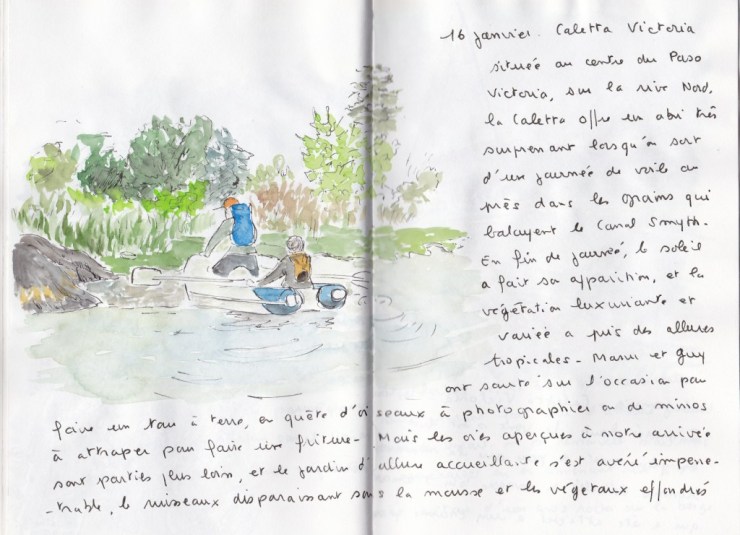 16 janvier. Caletta Victoria
située au centre du Paso
Victoria, sur la rive Nord,
la Caletta offre un abri très
surprenant lorsqu'on sort
d'une journée de voile au
près dans les grains qui
balayent le Canal Smyth.
En fin de journée, le soleil
a fait son apparition, et la
végétation luxuriante et
variée a pris des allures
tropicales - Manu et Guy
ont sauté sur l'occasion pour
faire un tour à terre, en quête d'oiseaux à photographier ou de minos
à attraper pour faire une friture - Mais les oies aperçues à notre arrivée
sont parties plus loin, et le jardin d'allure accueillante s'est avéré impéné-
-trable, le ruisseaux disparaissant sous la mousse et les végétaux effondrés